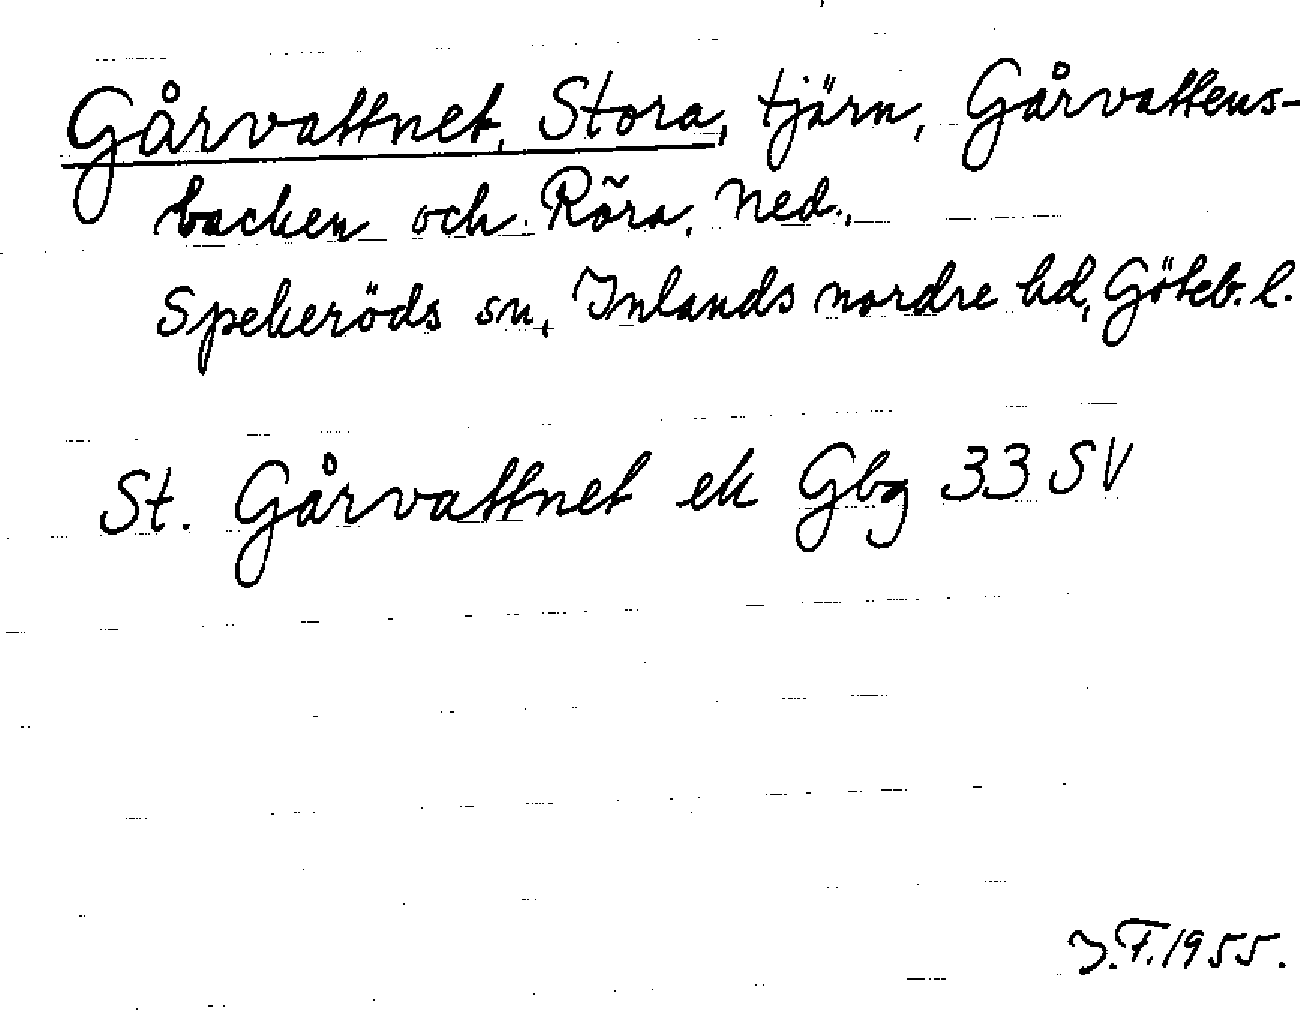 Gårvattnet, Stora, tjärn, Gårvattens-
backen och Röra, Ned.,
Spekeröds sn, Inlands nordre hd, Göteb. l.
St. Gårvattnet ek Gbg 33 SV
J.F. 1955.